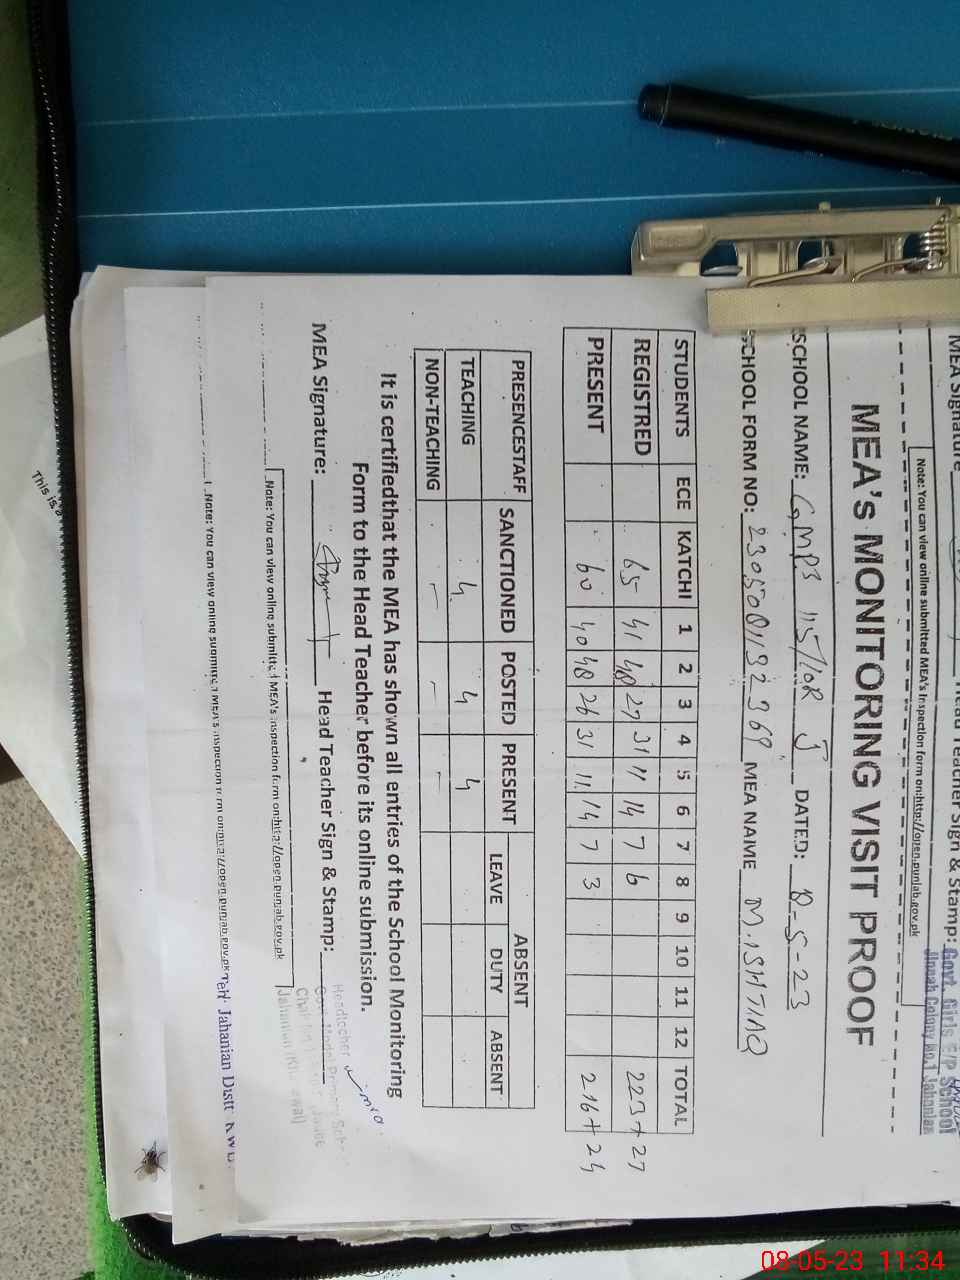 MEA Signature
Head Teacher Sign & Stamp: Govt. Girls E/P School
Jinnah Colony No.1 Jahanian
Note: You can view online submitted MEA's inspection form on:http://open.punjab.gov.pk
MEA's MONITORING VISIT PROOF
SCHOOL NAME: GMPS 115/10R J DATED: 8-5-23
SCHOOL FORM NO: MEA NAME M.ISHTIAQ
STUDENTS ECE KATCHI 1 2 3 4 5 6 7 8 9 10 11 12 TOTAL
REGISTRED 65 41 48 27 31 11 14 7 6 223+27
PRESENT 60 40 48 26 31 11 14 7 3 216+24
PRESENCESTAFF SANCTIONED POSTED PRESENT ABSENT
LEAVE DUTY ABSENT
TEACHING 4 4 4
NON-TEACHING - - -
It is certifiedthat the MEA has shown all entries of the School Monitoring
Form to the Head Teacher before its online submission.
MEA Signature: Head Teacher Sign & Stamp:
Headteacher
Govt. Model Primary Sch
Jahanian (Khanewal)
Note: You can view online submitted MEA's inspection form on:http://open.punjab.gov.pk
Note: You can view online submitted MEA's inspection form on:http://open.punjab.gov.pk
Teh: Jahanian Distt KWL
This is a
08-05-23 11:34